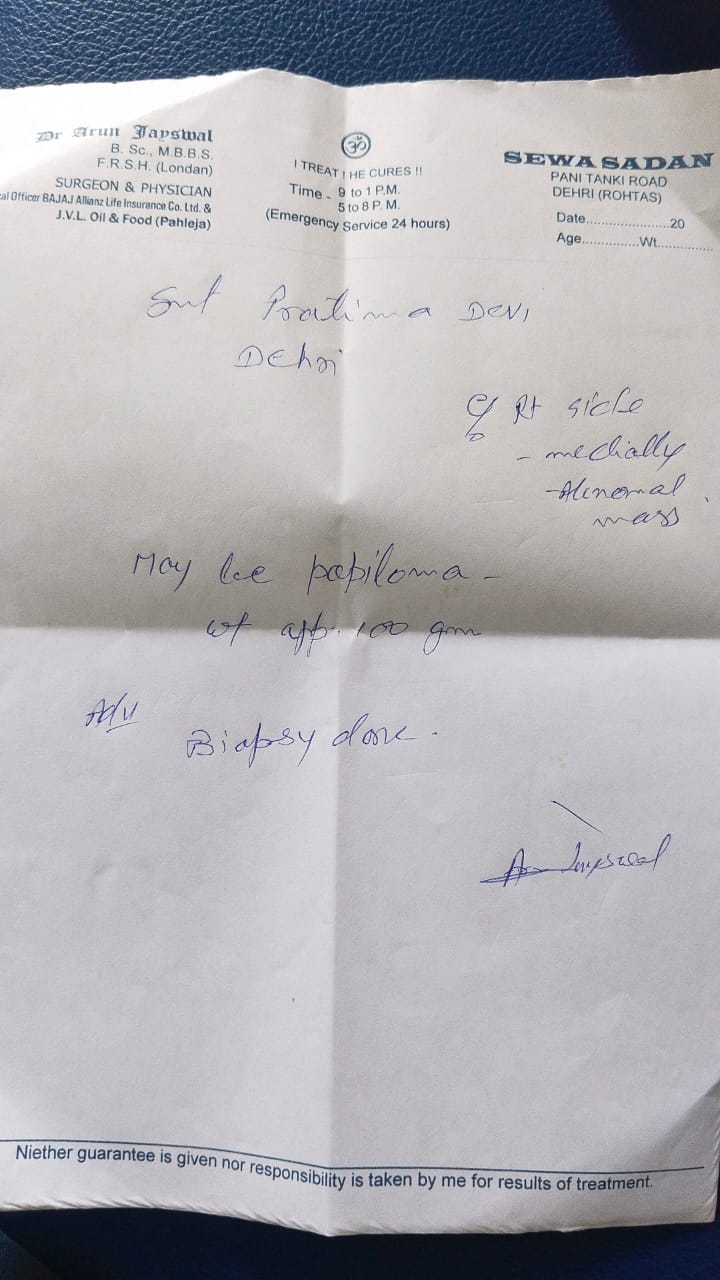 Dr Arun Jayswal
B. Sc., M.B.B.S.
F.R.S.H. (Londan)
SURGEON & PHYSICIAN
al Officer BAJAJ Allianz Life Insurance Co. Ltd. &
J.V.L. Oil & Food (Pahleja)
ॐ
I TREAT HE CURES !!
Time - 9 to 1 P.M.
5 to 8 P. M.
(Emergency Service 24 hours)
SEWA SADAN
PANI TANKI ROAD
DEHRI (ROHTAS)
Date.....................20
Age..............Wt..............
Smt Pratima DEVI
DEhri
C/o Rt side
- medially
- Abnormal
mass
May be papiloma -
wt app. 100 gm
Adv
Biapsy done.
Jayswal
Niether guarantee is given nor responsibility is taken by me for results of treatment.